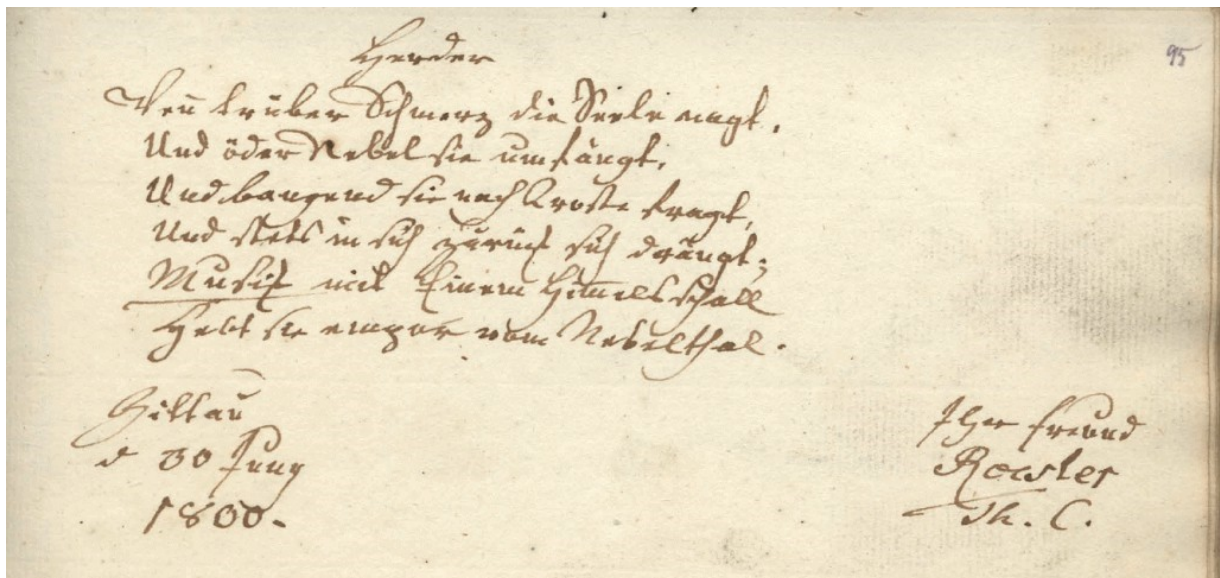 Herder
95
Wen trüber Schmerz die Seele nagt,
Und öder Nebel sie umfängt,
Und bangend sie nach Troste fragt,
Und stets in sich zurück sich drängt;
Musik mit Einem Himmelsschall
Hebt sie empor vom Nebelthal.
Zittau
d 30 Juny
1800.
Ihr Freund
Roesler
Th. C.